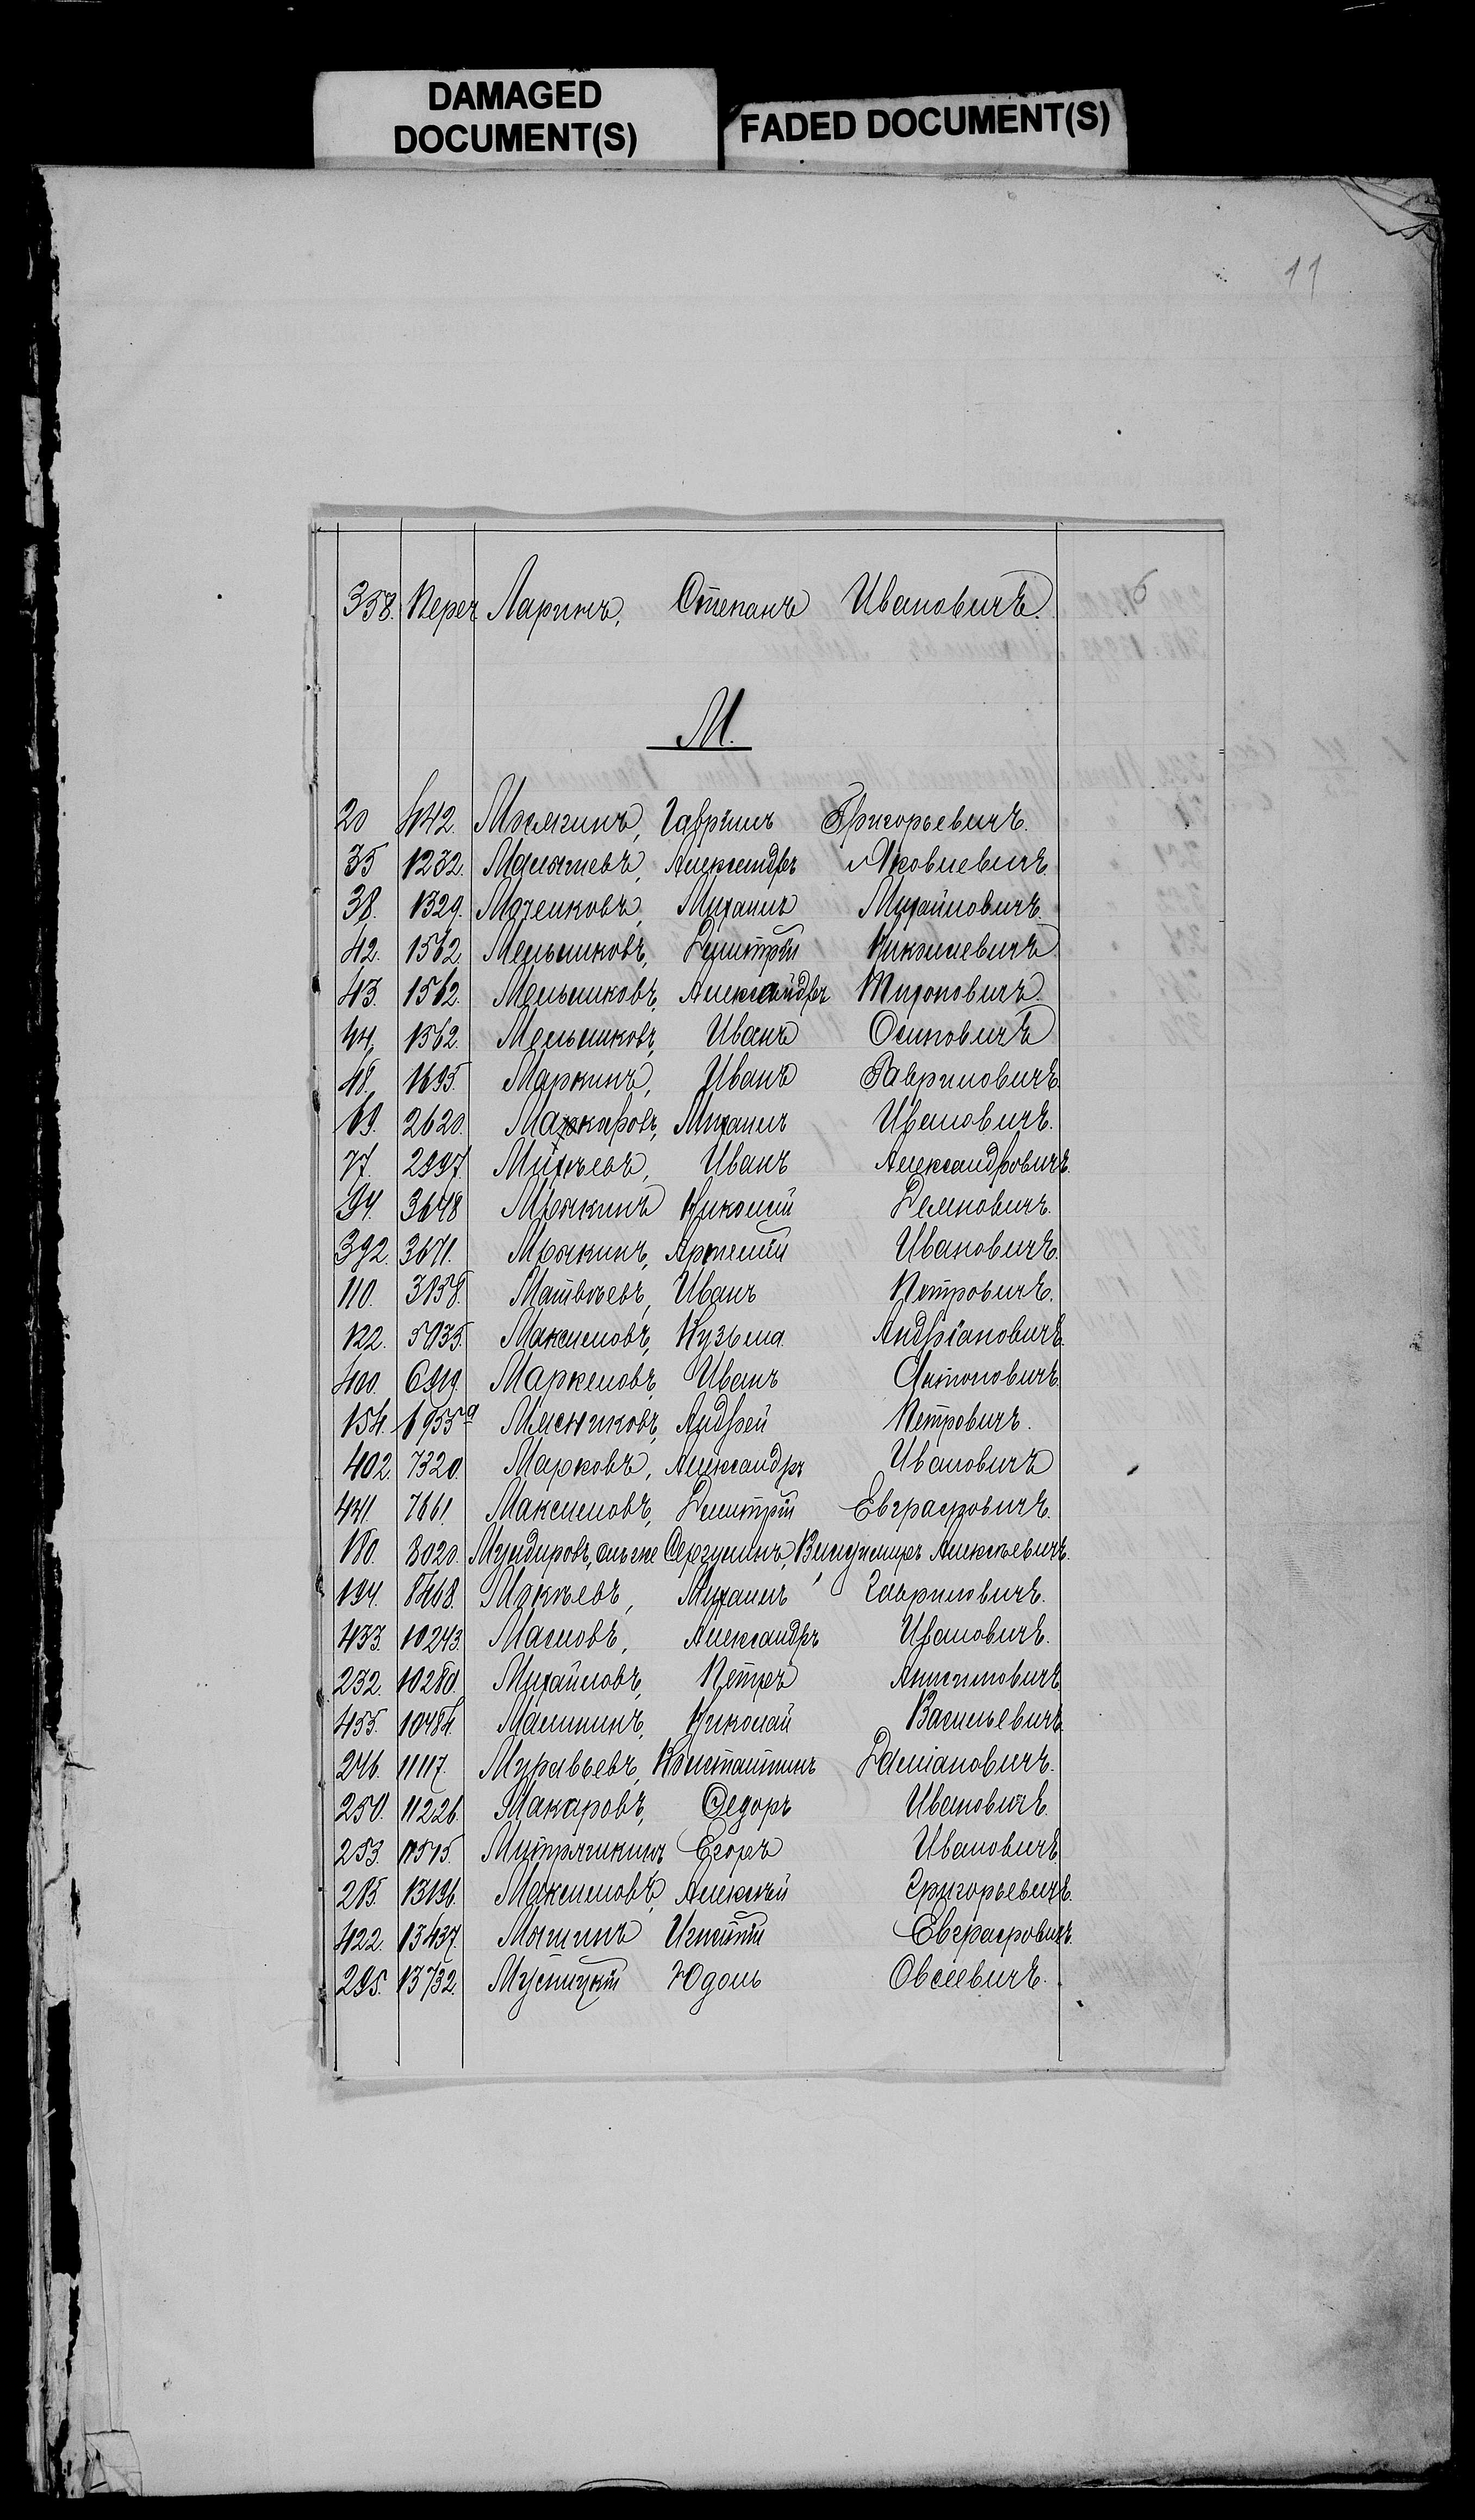 DAMAGED
DOCUMENT(S)
FADED DOCUMENT(S)
11
358. Переч Ларинъ, Степанъ Ивановичъ. 6
М.
20 442. Гавріилъ Григорьевичъ.
35 1232. Александръ Яковлевичъ.
38. 1329. Моченковъ, Михаилъ Михайловичъ.
42. 1562. Мельниковъ, Димитрій Николаевичъ
43. 1562. Мельниковъ, Александръ Мироновичъ.
44. 1562. Мельниковъ, Иванъ Осиповичъ
48. 1695. Маркинъ, Иванъ Гавриловичъ.
69. 2620. Макаровъ, Михаилъ Ивановичъ.
77. 2997. Михѣевъ, Иванъ Александровичъ.
94. 3648 Николай Деяновичъ.
392. 3671. Артемій Ивановичъ.
110. 3858. Матвѣевъ, Иванъ Петровичъ.
122. 5035. Максимовъ, Кузьма Андріановичъ.
400. 6919. Маркеловъ, Иванъ Антоновичъ.
154. 6955а Мясниковъ, Андрей Петровичъ.
402. 7320. Марковъ, Александръ Ивановичъ
441. 7661. Максимовъ, Димитрій Евграфовичъ.
180. 8020. Мундировъ, онъ же Сергушинъ, Владимиръ Алексѣевичъ.
194. 8468. Мокѣевъ, Михаилъ Гавриловичъ.
433. 10243. Масловъ, Александръ Ивановичъ.
232. 10280. Михайловъ, Петръ Анисимовичъ
455. 10484. Малининъ, Николай Васильевичъ.
246. 11117. Муравьевъ, Константинъ Даміановичъ.
250. 11226. Макаровъ, Ѳедоръ Ивановичъ.
253. 11515. Митрягинъ Егоръ Ивановичъ
285. 13196. Максимовъ, Алексѣй Григорьевичъ.
422. 13437. Мошинъ Игнатій Евграфовичъ.
295. 13732. Мусницкій Юдель Овсеевичъ.